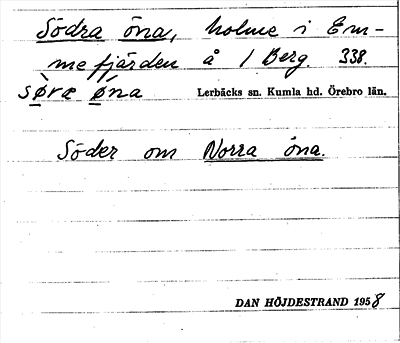 Södra öna, holme i Em-
mefjärden å 1 Berg. 338.
sø̀ræ øna Lerbäcks sn. Kumla hd. Örebro län.
Söder om Norra öna.
DAN HÖJDESTRAND 1958